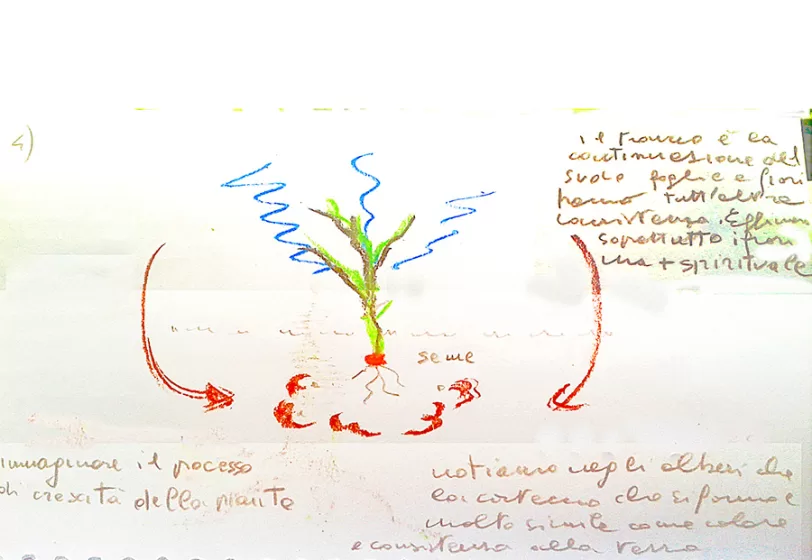 4)
il tronco è la
continuazione del
suolo foglie e fiori
hanno tutt'altra
consistenza. Effimera
soprattutto i fiori
ma + spirituale
seme
immaginare il processo
di crescita della pianta
notiamo negli alberi che
la corteccia che si forma è
molto simile come colore
e consistenza alla terra